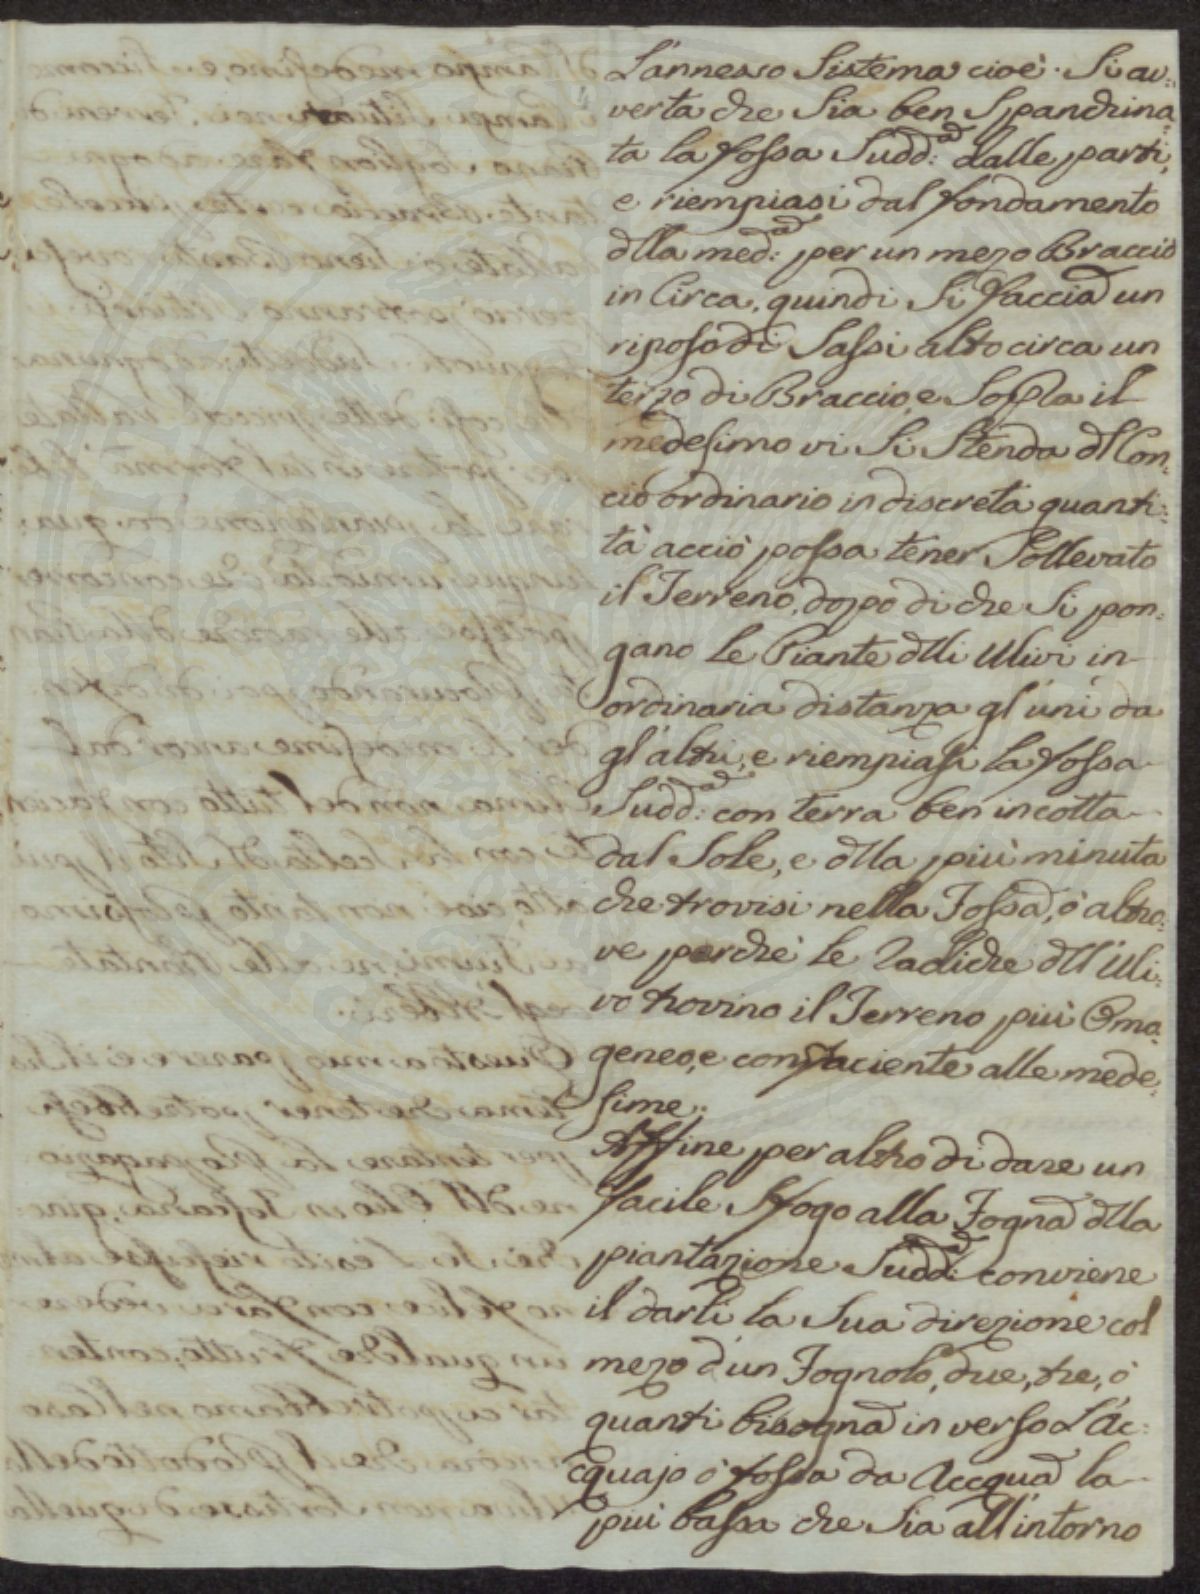 L'annesso Sistema cioè. Si av:
verta che Sia ben Spandrina:
ta la fossa Sudd:ª dalle parti,
e riempiasi dal fondamento
dlla med:ª per un mezo Braccio
in Circa, quindi Si faccia un
riposo di Sassi alto circa un
terzo di Braccio, e Sopra il
medesimo vi Si Stenda dl Con:
cio ordinario in discreta quanti:
tà acciò possa tener Sollevato
il Terreno, dopo di che Si pon:
gano le Piante dlli Ulivi in
ordinaria distanza gl'uni da
gl'altri, e riempiasi la fossa
Sudd:ª con terra ben incotta
dal Sole, e dlla più minuta
che trovisi nella Fossa, ò altro:
ve perchè le Radiche dll'Uli:
vo trovino il Terreno più Omo:
geneo, e confaciente alle mede:
sime:
Affine per altro di dare un
facile Sfogo alla Fogna dlla
piantazione Sudd:ª conviene
il darli la Sua direzione col
mezo d'un Fognolo, due, tre, ò
quanti bisogna in verso L'Ac:
cquajo ò fossa da Accqua la
più bassa che Sia all'intorno